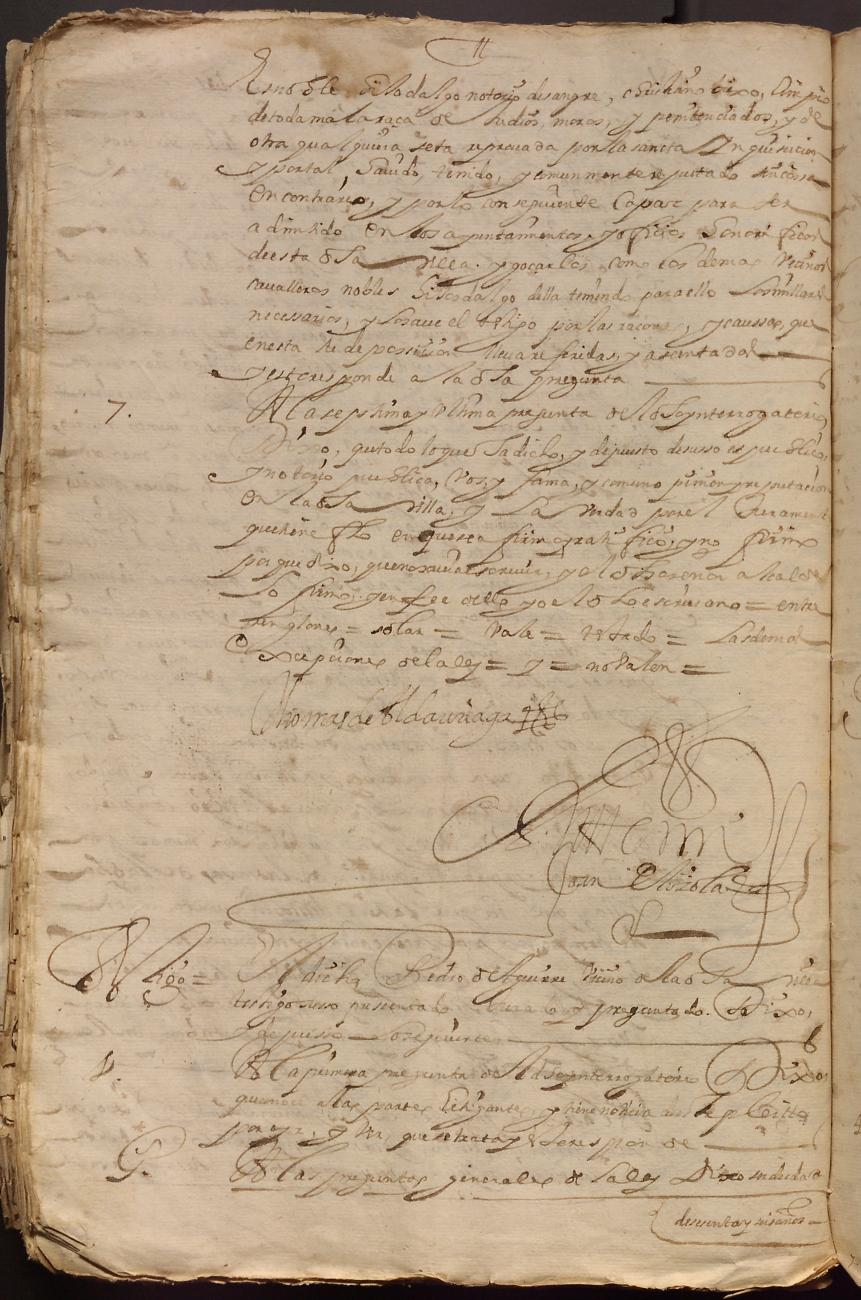 Es noble hijo dalgo notorio de sangre, christiano biexo, limpio
de toda mala raça de Judios, moros, y penitençiados, y de
otra qualquiera seta reprovada por la sancta Ynquisicion
y por tal, havido, tenido, y comunmente rreputado sin cossa
en contrario, y por lo consiguiente Capaz para ser
admitido en los ayuntamientos, y ofiçios honorificos
de esta dha villa. y goçarlos, como los demas veçinos
cavalleros nobles hijosdalgo della teniendo para ello los millares
neçessarios, y lo save el testigo por las raçones, y caussas, que
en esta su deposicion lleva referidas, y asentadas
y esto responde a la dha pregunta
7. A la septima y ultima pregunta del dho ynterrogatorio
Dixo, que todo lo que ha dicho, y depuesto de suso es publico,
y notorio publica, voz, y fama, y comun opinion y reputacion
en la dha villa, y la verdad para el Juramento
que tiene fho en que se afirmo y ratifico, y no firmo
porque dixo, que no savia escrivir, y el dho theniente de Alcalde
lo firmo. y en fee dello yo el dho escrivano = entre
renglones = solar = Vale = testado = las demas
excepciones de la ley = y = no valen =
Thomas de Aldaviaga
Ante mi
Joan de Elizalde
Testigo = El dicho Pedro de Aguirre veçino de la dha villa
testigo suso presentado Jurado y preguntado. Dixo,
y depusso lo siguiente
1. A la primera pregunta del dho ynterrogatorio Dixo
que conoce a las partes litigantes, y tiene noticia deste pleito
por oyr, y ver, que se trata y esto responde
G. A las preguntas generales de la ley Dixo ser de edad
de sesenta y seis años